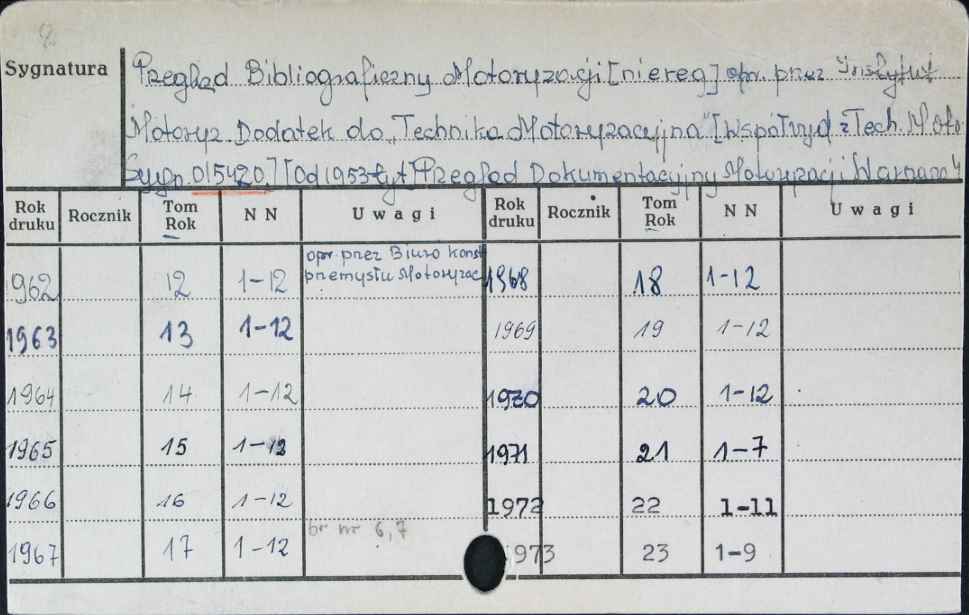 2
Sygnatura
Przegląd Bibliograficzny Motoryzacji [niereg] opr. przez Instytut
Motoryz. Dodatek do „Technika Motoryzacyjna" [Wspólryd z Tech. Moto
Sygn. 015420] [Od 1953 tyt Przegląd Dokumentacyjny Motoryzacji Warszawa
Rok druku Rocznik Tom Rok NN Uwagi Rok druku Rocznik Tom Rok NN Uwagi
962 12 1-12 opr przez Biuro konst przemysłu Motoryzac 1968 18 1-12
1963 13 1-12 1969 19 1-12
1964 14 1-12 1970 20 1-12
1965 15 1-12 1971 21 1-7
1966 16 1-12 1972 22 1-11
1967 17 1-12 br nr 6,7 1973 23 1-9